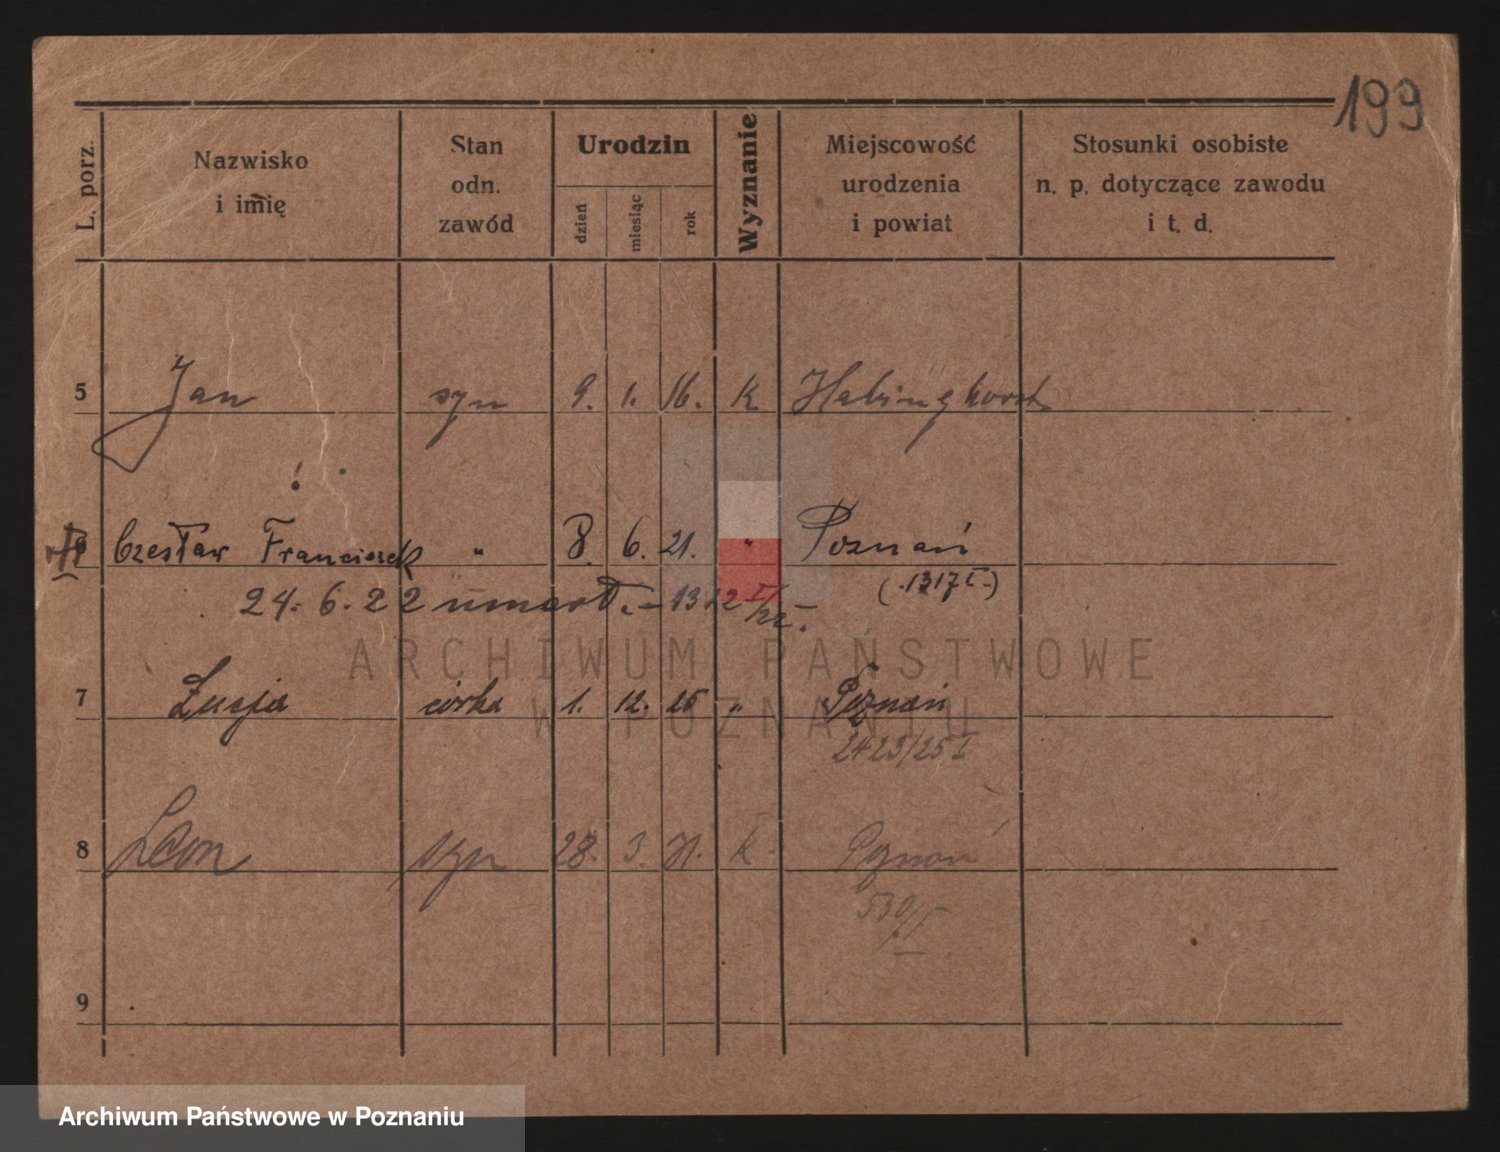 199
L. porz.
Nazwisko
i imię
Stan
odn.
zawód
Urodzin
dzień
miesiąc
rok
Wyznanie
Miejscowość
urodzenia
i powiat
Stosunki osobiste
n. p. dotyczące zawodu
i t. d.
5 Jan syn 9. 1. 16. K Habinghorst
!
6 Czesław Franciszek " 8. 6. 21. " Poznań
(1317 I-)
24. 6. 22 umarł. - 1312 I/22.
ARCHIWUM PAŃSTWOWE
W POZNANIU
7 Łucja córka 1. 12. 25 " Poznań
2423/25 I
8 Leon syn 28. 3. 31. K. Poznań
530/I
9
Archiwum Państwowe w Poznaniu